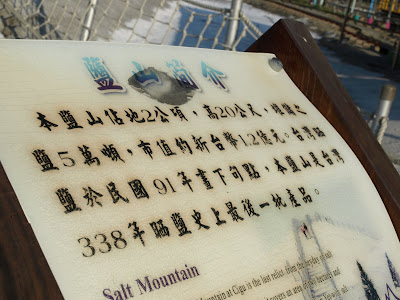 鹽山簡介
本鹽山佔地2公頃，高20公尺，堆儲之
鹽5萬噸，市值約新台幣1.2億元。台灣晒
鹽於民國91年畫下句點，本鹽山是台灣
338年晒鹽史上最後一批產品。
Salt Mountain
Mountain at Cigu is the last relict from the